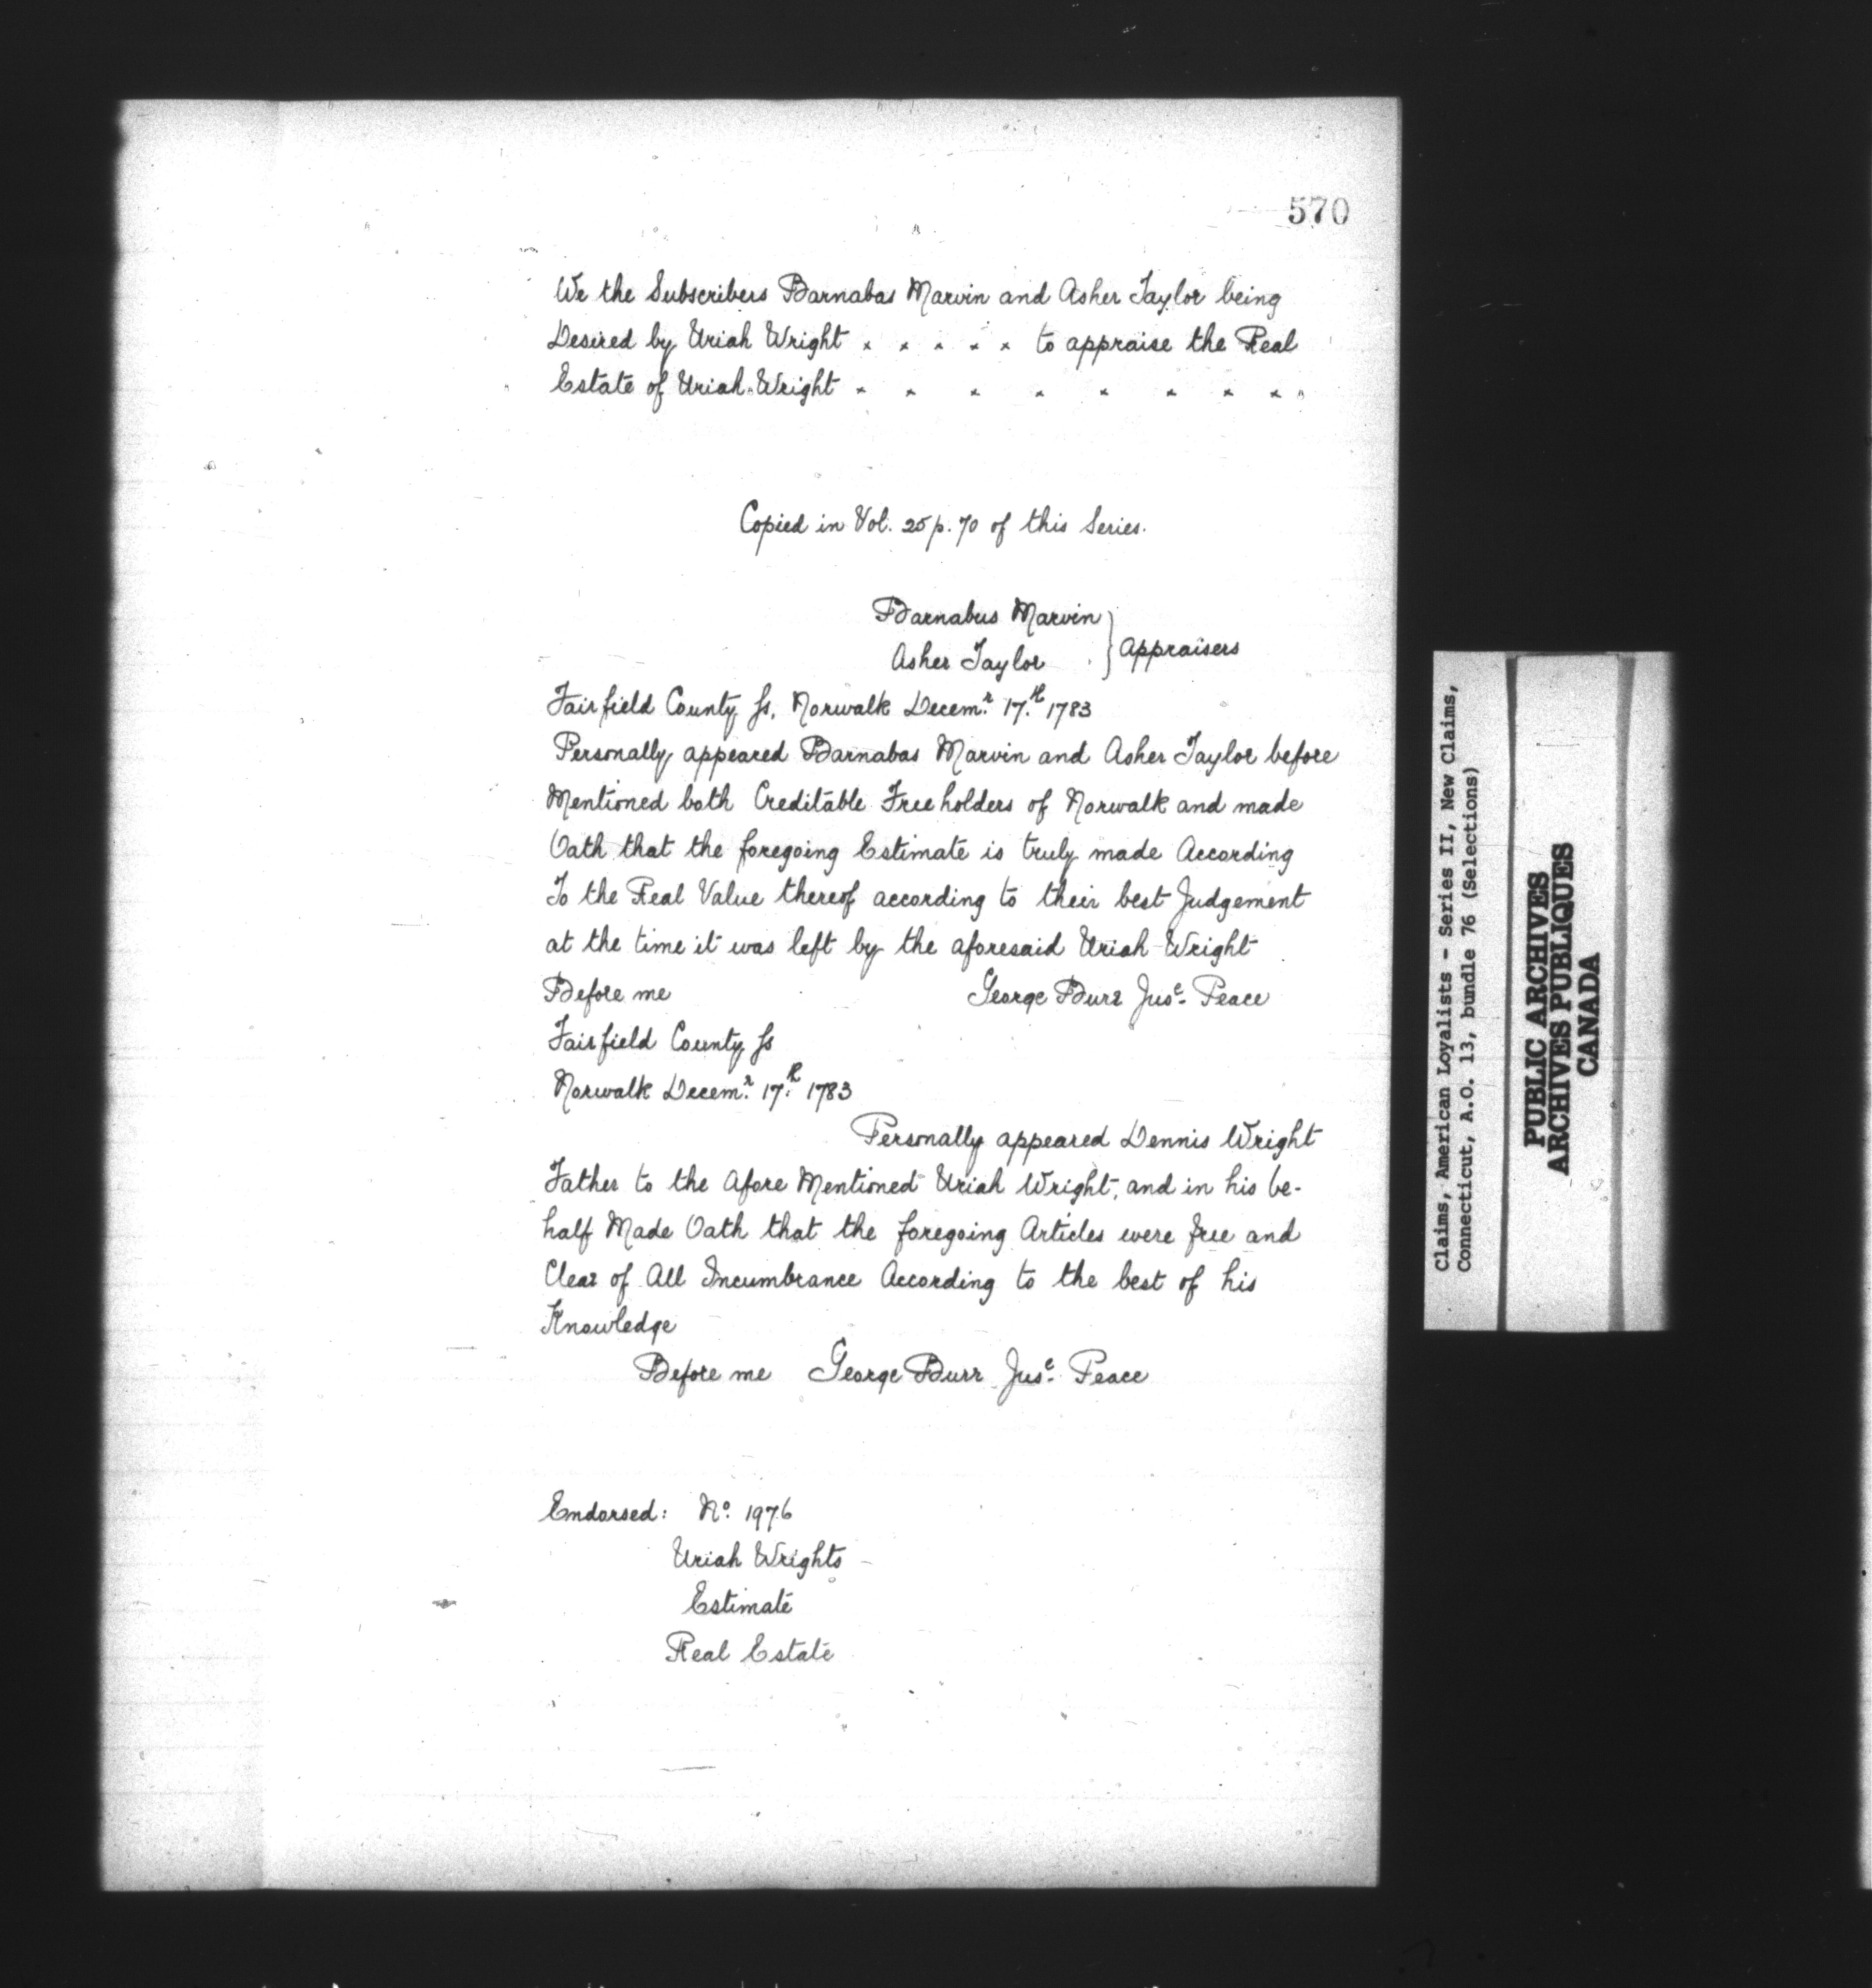 570
We the Subscribers Barnabas Marvin and Asher Taylor being
Desired by Uriah Wright x x x x x to appraise the Real
Estate of Uriah Wright x x x x x x x x
Copied in Vol. 25 p. 70 of this Series.
Barnabus Marvin
Asher Taylor } Appraisers
Fairfield County ſs, Norwalk Decem.r 17.th 1783
Personally appeared Barnabas Marvin and Asher Taylor before
Mentioned both Creditable Freeholders of Norwalk and made
Oath that the foregoing Estimate is truly made According
To the Real Value thereof according to their best Judgement
at the time it was left by the aforesaid Uriah Wright
Before me George Burr Jus.e Peace
Fairfield County ſs
Norwalk Decem.r 17.th 1783
Personally appeared Dennis Wright
Father to the Afore Mentioned Uriah Wright, and in his be-
half Made Oath that the foregoing Articles were free and
Clear of All Incumbrance According to the best of his
Knowledge
Before me George Burr Jus.e Peace
Endorsed: No. 1976
Uriah Wrights
Estimate
Real Estate
Claims, American Loyalists - Series II, New Claims,
Connecticut, A.O. 13, bundle 76 (Selections)
PUBLIC ARCHIVES
ARCHIVES PUBLIQUES
CANADA